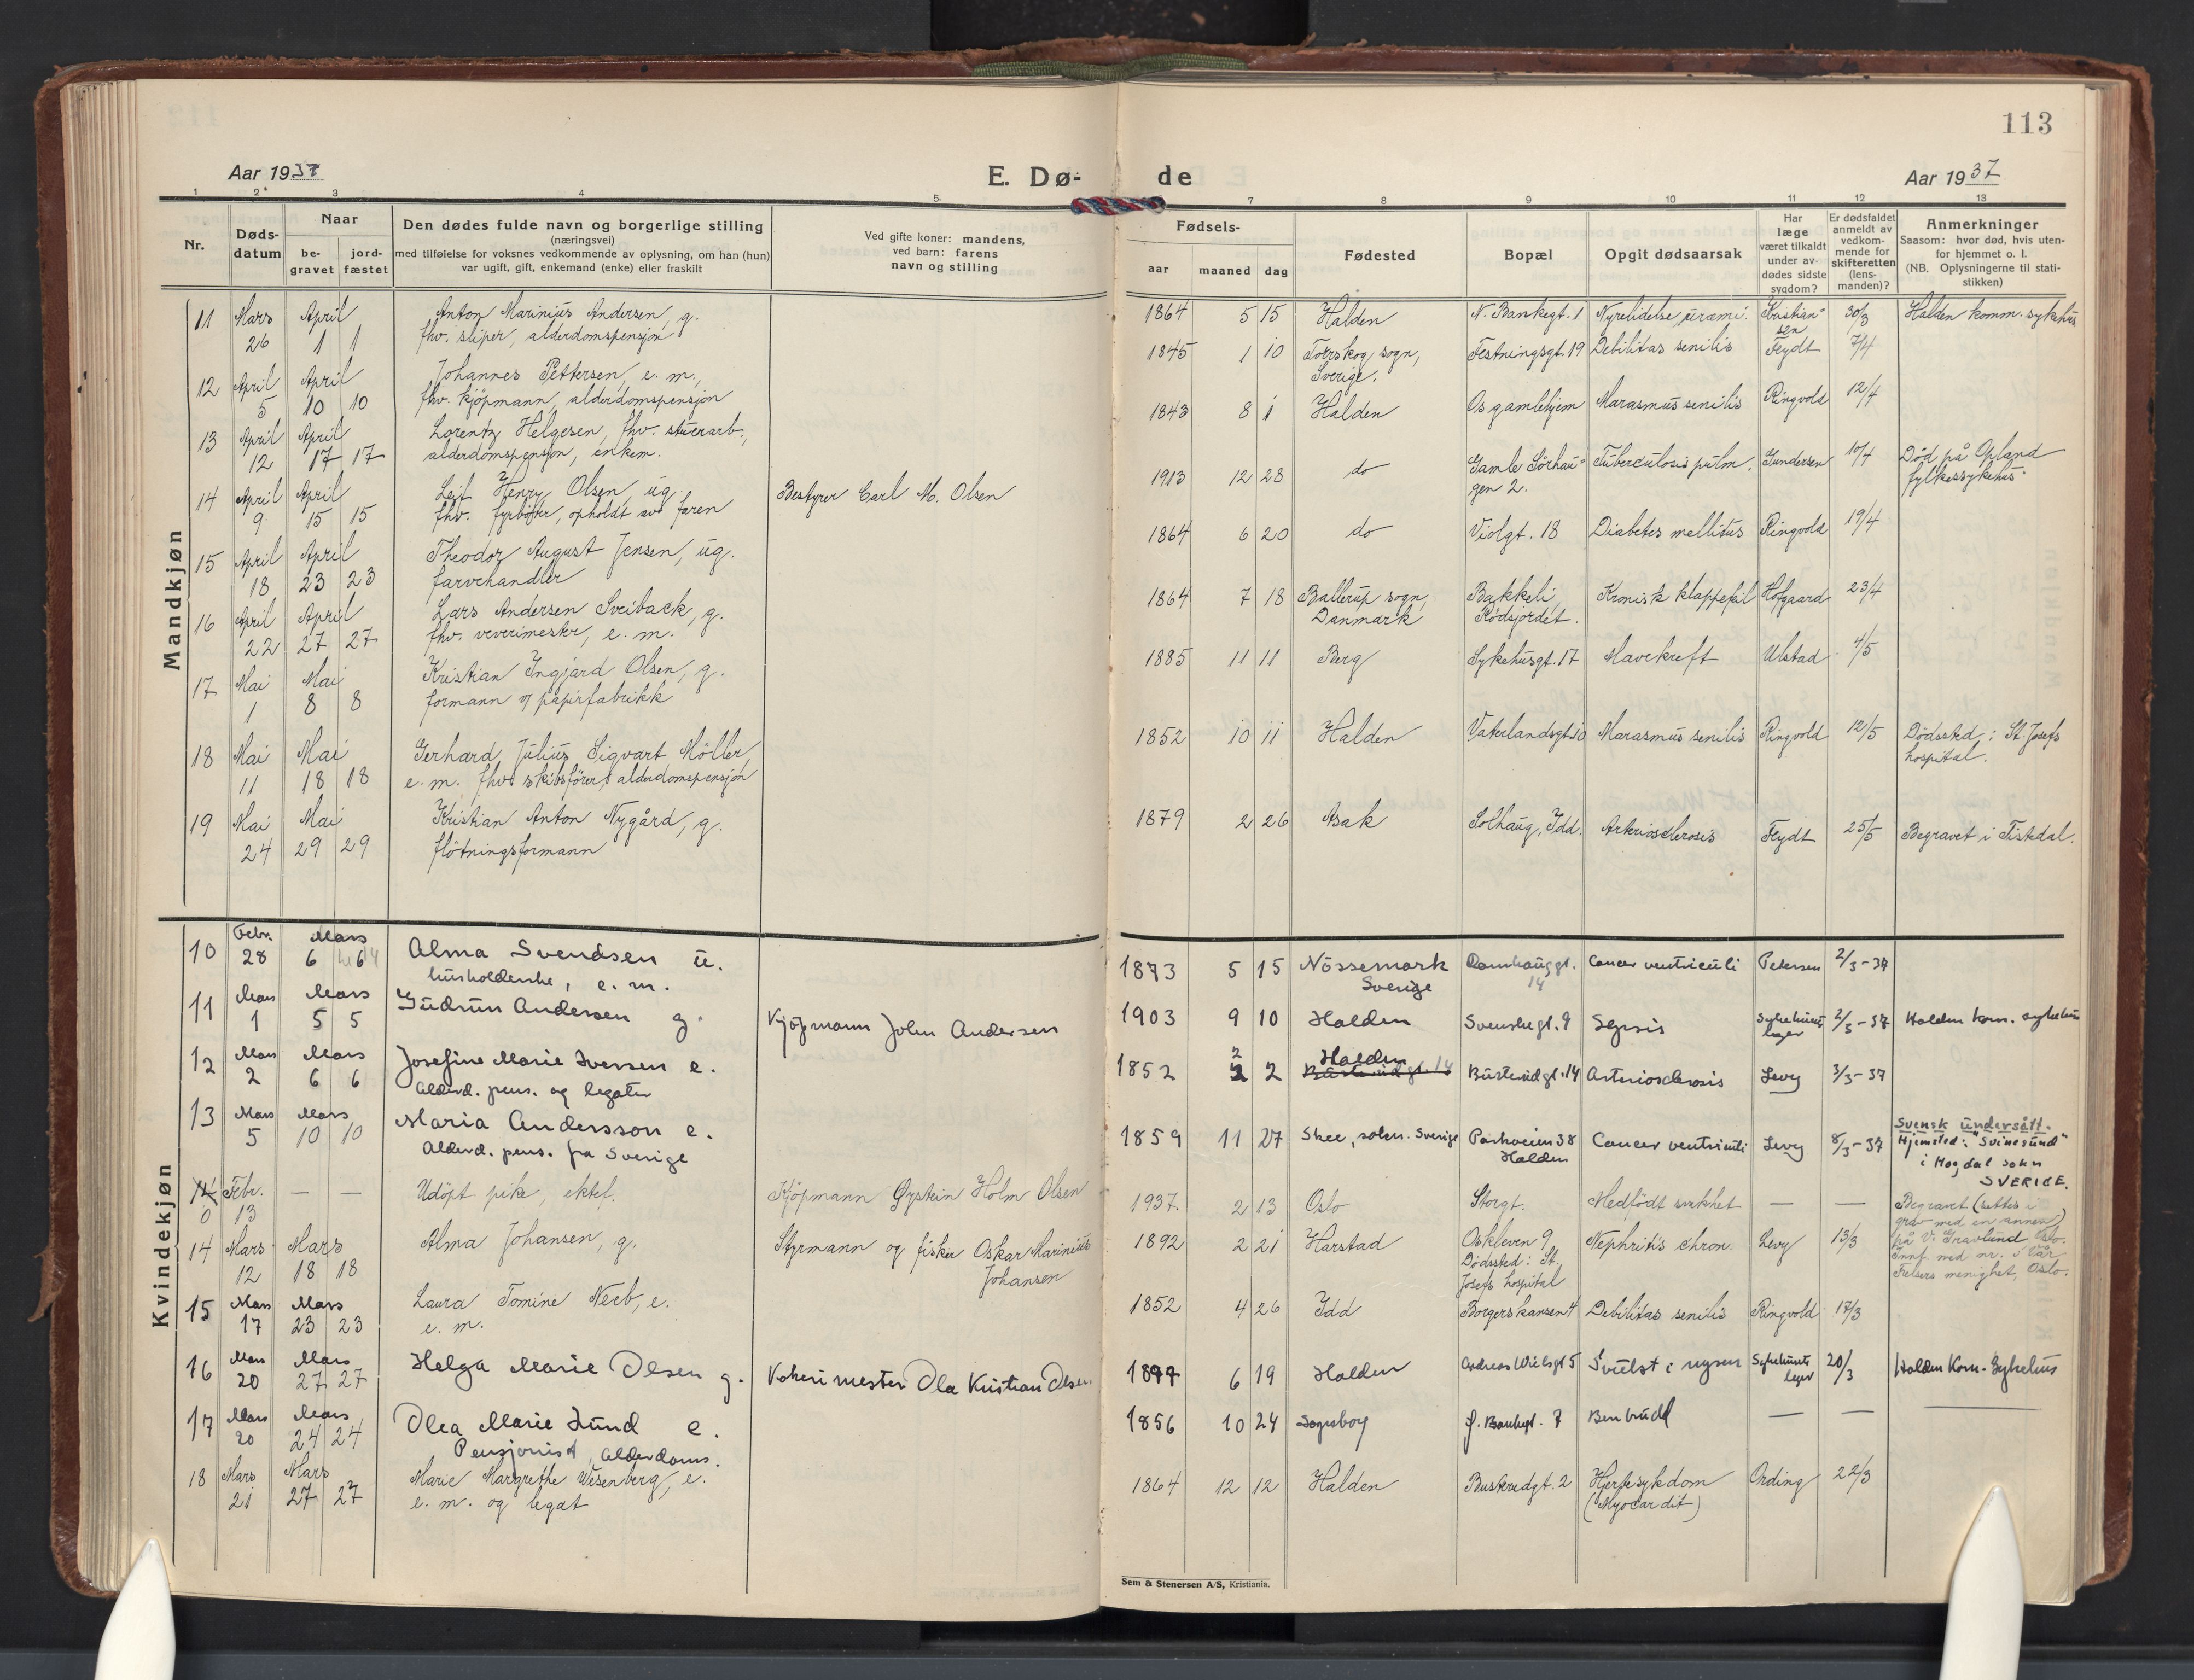 113
Aar 1937
E. Dø-
de
Aar 1937
1 2 3 4 5 7 8 9 10 11 12 13
Nr.
Døds-
datum
Naar
be-
gravet
jord-
fæstet
Den dødes fulde navn og borgerlige stilling
(næringsvei)
med tilføielse for voksnes vedkommende av oplysning, om han (hun)
var ugift, gift, enkemand (enke) eller fraskilt
Ved gifte koner: mandens,
ved barn: farens
navn og stilling
Fødsels-
aar maaned dag
Fødested
Bopæl
Opgit dødsaarsak
Har
læge
været tilkaldt
under av-
dødes sidste
sygdom?
Er dødsfaldet
anmeldt av
vedkom-
mende for
skifteretten
(lens-
manden)?
Anmerkninger
Saasom: hvor død, hvis uten-
for hjemmet o. l.
(NB. Oplysningerne til stati-
stikken)
Mandkjøn
11 Mars April Anton Marinius Andersen, g. 1864 5 15 Halden N. Bankegt. 1 Nyrelidelse, uræmi. Kristian- 30/3 Halden komm. sykehus
26 1 1 fhv. sliper, alderdomspensjon sen
12 April April Johannes Pettersen, e. m., 1845 1 10 Torrskog sogn, Festningsgt. 19 Debilitas senilis Feydt 7/4
5 10 10 fhv. kjöpmann, alderdomspensjon Sverige.
13 April April Lorentz Helgesen, fhv. stuerarb., 1843 8 1 Halden Os gamlehjem Marasmus senilis Ringvold 12/4
12 17 17 alderdomspensjon, enkem.
14 April April Leif Henry Olsen, ug. Bestyrer Carl M. Olsen 1913 12 28 do Gamle Sörhau- Tuberculosis pulm. Gundersen 10/4 Död på Opland
9 15 15 fhv. fyrböter, opholdt av faren gen 2. fylkessykehus.
15 April April Theodor August Jensen, ug. 1864 6 20 do Violgt. 18 Diabetes mellitus Ringvold 19/4
18 23 23 farvehandler
16 April April Lars Andersen Sveiback, g. 1864 7 18 Ballerup sogn, Bakkeli Kronisk klappefeil Hofgaard 23/4
22 27 27 fhv. vevermester, e. m. Danmark Rödsjordet.
17 Mai Mai Kristian Ingjard Olsen, g. 1885 11 11 Berg Sykehusgt. 17 Mavekreft Ulstad 4/5
1 8 8 formann v/ papirfabrikk
18 Mai Mai Gerhard Julius Sigvart Möller, 1852 10 11 Halden Vaterlandsgt. 10 Marasmus senilis Ringvold 12/5 Dödssted: St. Josefs
11 18 18 e. m. fhv. skibsförer, alderdomspensjon hospital.
19 Mai Mai Kristian Anton Nygård, g. 1879 2 26 Asak Solhaug, Idd. Arteriosclerosis Feydt 25/5 Begravet i Tistedal.
24 29 29 flötningsformann
Kvindekjøn
10 Febr. Mars Alma Svendsen u. 1873 5 15 Nössemark Cancer ventriculi Petersen 2/3-37
28 6 6 husholderske, e. m. Sverige 14
11 Mars Mars Gudrun Andersen g. Kjöpmann John Andersen 1903 9 10 Halden Svenskegt. 9 Sepsis Sykehusets 2/3-37 Halden kom. sykehus
1 5 5 læger
12 Mars Mars Josefine Marie Iversen e. 1852 2 2 Halden Busterudgt. 14 Arteriosclerosis Levy 3/3-37
2 6 6 Alderd. pens. og legater Busterudgt. 14
13 Mars Mars Maria Andersson e. 1859 11 27 Skee, sokn. Sverige Parkveien 38 Cancer ventriculi Levy 8/3-37 Svensk undersått.
5 10 10 Alderd. pens. fra Sverige Halden Hjemsted: "Svinesund"
i Hogdal sokn
SVERIGE.
0 Febr. — — Udöpt pike, ektef. Kjöpmann Øystein Holm Olsen 1937 2 13 Oslo Storgt. Medfödt svakhet — — Begravet (settes i
13 grav med en annen)
14 Mars Mars Alma Johansen, g. Styrmann og fisker Oskar Marinius 1892 2 21 Harstad Oskleven 9 Nephritis chron. Levy 13/3 på V. Gravlund Oslo.
12 18 18 Johansen Dödssted: St. Innf. med nr. i Vår
Josefs hospital Frelsers menighet, Oslo.
15 Mars Mars Laura Tomine Neeb, e. 1852 4 26 Idd Borgerskansen 4 Debilitas senilis Ringvold 17/3
17 23 23 e. m.
16 Mars Mars Helga Marie Olsen g. mester Ola Kristian Olsen 1877 6 19 Halden Andreas Wielsgt 5 Svulst i nyren Sykehusets 20/3 Halden Kom. Sykehus
20 27 27 leger
17 Mars Mars Olea Marie Lund e. 1856 10 24 7 Benbrudd — — —
20 24 24 Pensjonist, Alderdoms.
18 Mars Mars Marie Margrethe Wesenberg, e. 1864 12 12 Halden Busterudgt. 2 Hjertesykdom Ording 22/3
21 27 27 e. m. og legat (Myocardit)
Sem & Stenersen A/S, Kristiania.